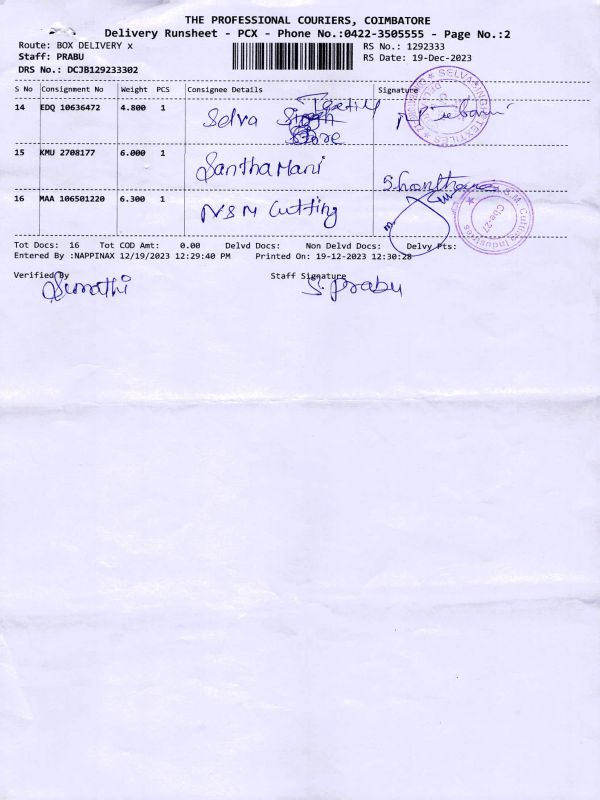 THE PROFESSIONAL COURIERS, COIMBATORE
Delivery Runsheet - PCX - Phone No.:0422-3505555 - Page No.:2
Route: BOX DELIVERY x
RS No.: 1292333
Staff: PRABU
RS Date: 19-Dec-2023
DRS No.: DCJB129233302
S No Consignment No Weight PCS Consignee Details Signature
14 EDQ 10636472 4.800 1 Selva Textile
Store
15 KMU 2708177 6.000 1 Santha Mani
Shanthamani
16 MAA 106501220 6.300 1 NSM Cutting
Tot Docs: 16 Tot COD Amt: 0.00 Delvd Docs: Non Delvd Docs: Delvy Pts:
Entered By :NAPPINAX 12/19/2023 12:29:40 PM Printed On: 19-12-2023 12:30:28
Verified By Staff Signature
Sumathi S. Prabu